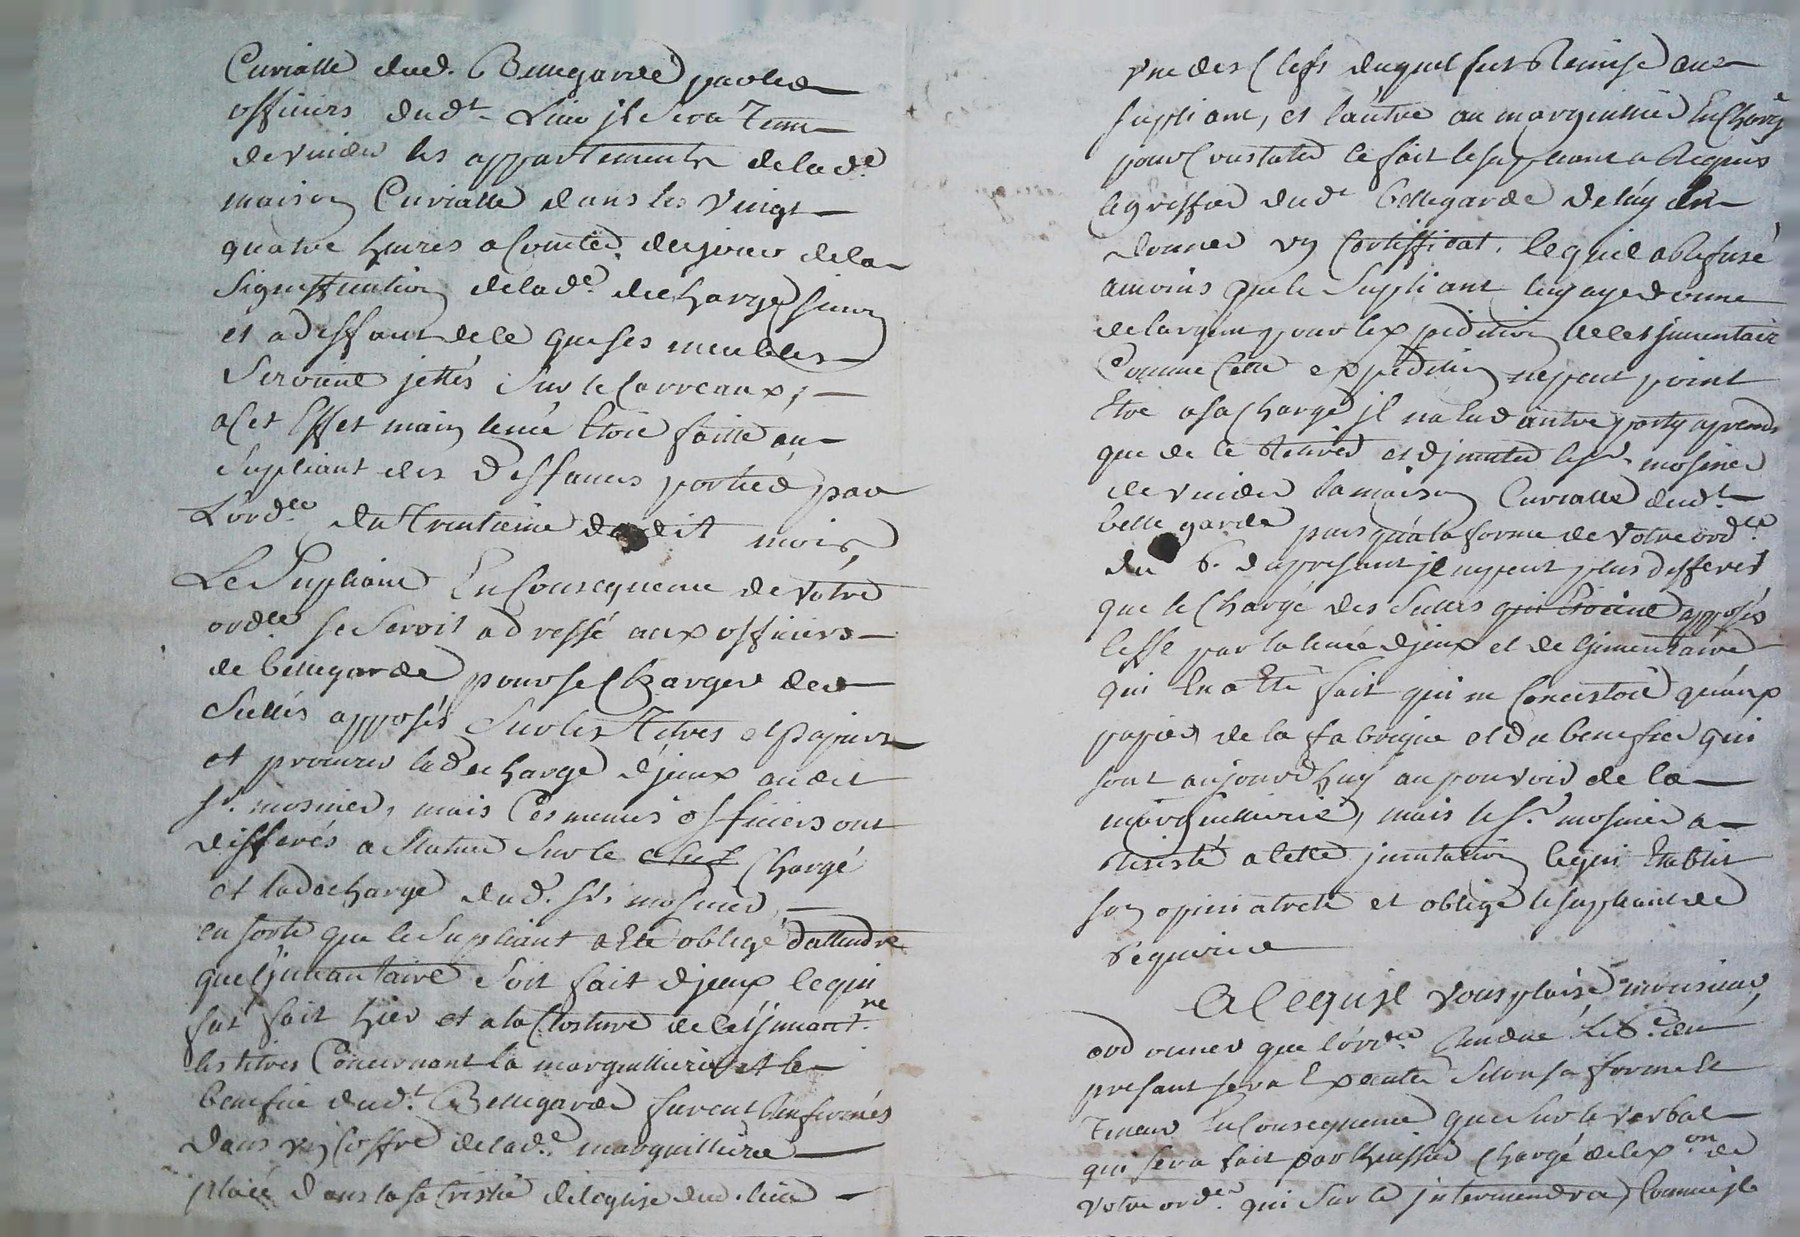 Curialle dud. Bellegarde par les
officiers dudt. Lieu jl sera Tenu
de vuider les appartements de lade.
maison Curialle dans les vingt
quatre heures a Compter du jour de la
Signiffication de lade. decharge sinon
et a deffaut de ce que ses meubles
Seroint jettés Sur le Carreaux;
a Cet Effet main levée Etoit faitte au
Supliant des Deffances portées par
L'ordce. du Trentieme dudit mois
Le Supliant En Consequence de Vôtre
ordce. se Seroit adressé aux officiers
de bellegarde pour se Charger des
Scellés apposés Sur les Titres et papiers
et procurer la decharge d'jceux audit
sr. mosnier, mais Ces memes officiers ont
differés a Statuer Sur le Chargé
et la decharge dud. sr. mosnier,
en sorte que le Supliant a Eté obligé d'attendre
que l'jnvantaire Soit fait d'jceux ce qui
fut fait hier et a la Closture de Cet jnvantre.
les titres Concernant la marguillerie et le
benefice dudt. Bellegarde furent Renfermés
dans un Coffre de lade. marguillerie
placé dans la sacristie de l'eglise dud. lieu
vne des Clefs duquel fut Remise au
supliant, et l'autre au marguillier En Charge
pour Constater ce fait le supliant a Requis
le greffier dudt bellegarde de luy en
donner un Certifficat, lequel a Refusé
amoins que le Supliant luy aye donné
de l'argent pour l'expedition de Cet jnventaire
Comme Cette expedition ne peut point
Etre a sa Charge jl na eu d'autre party a prendre
que de ce Retirer et d'jnviter le sr. mosnier
de vuider la maison Curialle dudt.
belle garde puis qu'a la forme de Votre ordce.
du 6. du present jl ne peut plus differer
que le Chargé des Scellés qui Etoient apposés
Cesse par la levée d'jceux et de l'jnventaire
qui En a Eté fait qui ne Concistoit qu'aux
papier de la fabrique et du benefice qui
sont aujourd'huy au pouvoir de la
marguillerie, mais le sr. mosnier a
Resisté a Cette jnvitation ce qui Etablit
son opiniatreté et oblige le supliant de
Requerir
A Ce qu'jl Vous plaise monsieur
ordonner que l'ordce. Rendue Le 6e. du
present sera Executée Selon sa forme Et
Teneur En Consequence que Sur le verbal
qui sera fait par l'huissier Chargé de l'exon. de
Votre ordce. qui Sur Ce jnterviendra, Comme jl